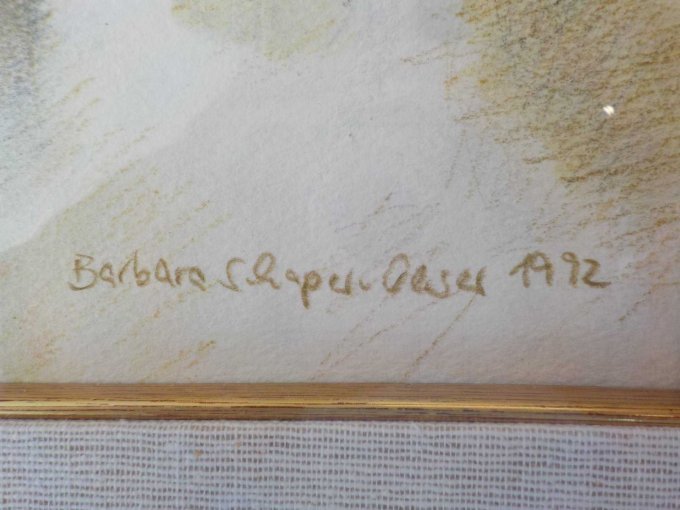 Barbara Schaper-Oeser 1992